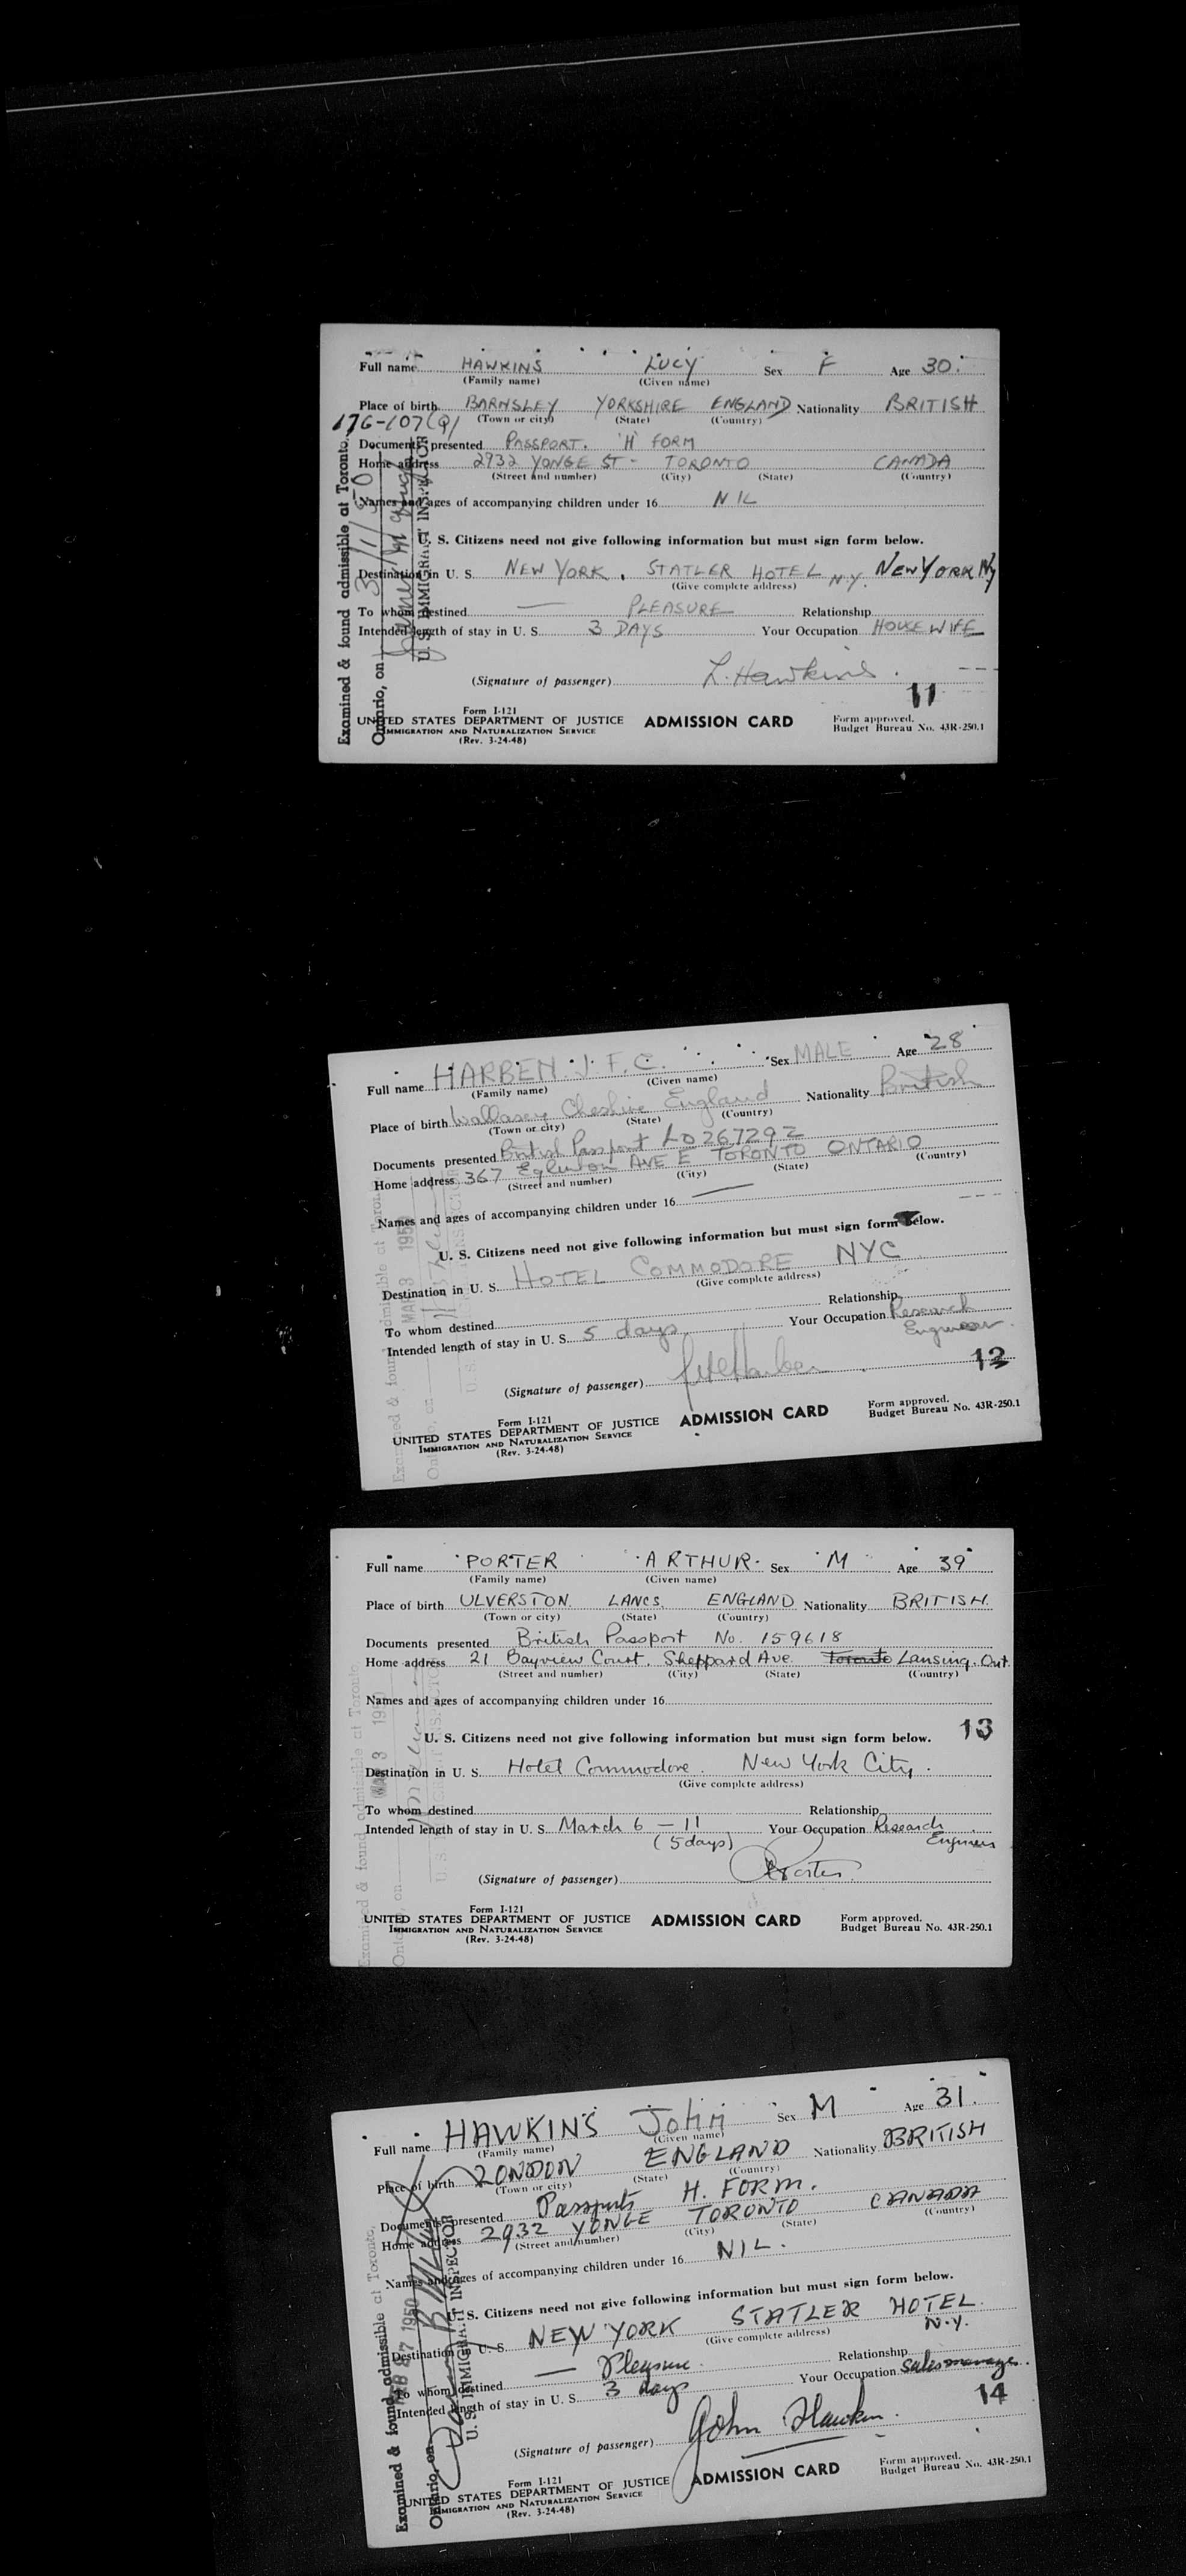 Full name HAWKINS LUCY Sex F Age 30.
(Family name) (Given name)
Place of birth BARNSLEY YORKSHIRE ENGLAND Nationality BRITISH
176-107(9) (Town or city) (State) (Country)
Documents presented PASSPORT. 'H' FORM
Home address 2932 YONGE ST - TORONTO CANADA
(Street and number) (City) (State) (Country)
Names and ages of accompanying children under 16 NIL
U. S. Citizens need not give following information but must sign form below.
Destination in U. S. NEW YORK. STATLER HOTEL N.Y. NEW YORK NY
(Give complete address)
To whom destined — PLEASURE Relationship
Intended length of stay in U. S. 3 DAYS Your Occupation HOUSEWIFE
(Signature of passenger) L. Hawkins.
11
Form I-121
UNITED STATES DEPARTMENT OF JUSTICE ADMISSION CARD Form approved.
IMMIGRATION AND NATURALIZATION SERVICE Budget Bureau No. 43R-250.1
(Rev. 3-24-48)
Examined & found admissible at Toronto,
Ontario, on
U. S. IMMIGRANT INSPECTOR
Full name HARBEN J. F. C. Sex MALE Age 28
(Family name) (Given name)
Place of birth Wallasey Cheshire England Nationality British
(Town or city) (State) (Country)
Documents presented British Passport LO267292
Home address 367 Eglinton AVE E TORONTO ONTARIO
(Street and number) (City) (State) (Country)
Names and ages of accompanying children under 16 —
U. S. Citizens need not give following information but must sign form below.
Destination in U. S. HOTEL COMMODORE NYC
(Give complete address)
To whom destined Relationship
Intended length of stay in U. S. 5 days Your Occupation Research
Engineer.
(Signature of passenger) Harben
12
Form I-121
UNITED STATES DEPARTMENT OF JUSTICE ADMISSION CARD Form approved.
IMMIGRATION AND NATURALIZATION SERVICE Budget Bureau No. 43R-250.1
(Rev. 3-24-48)
Examined & found admissible at Toronto
Ontario, on MAR 3 1950
U. S. INSPECTOR
Full name PORTER ARTHUR. Sex M Age 39
(Family name) (Given name)
Place of birth ULVERSTON. LANCS. ENGLAND Nationality BRITISH.
(Town or city) (State) (Country)
Documents presented British Passport No. 159618
Home address 21 Bayview Court. Sheppard Ave. Toronto Lansing. Ont.
(Street and number) (City) (State) (Country)
Names and ages of accompanying children under 16
13
U. S. Citizens need not give following information but must sign form below.
Destination in U. S. Hotel Commodore. New York City.
(Give complete address)
To whom destined Relationship
Intended length of stay in U. S. March 6 – 11 Your Occupation Research
(5 days) Engineer
(Signature of passenger) A Porter
Form I-121
UNITED STATES DEPARTMENT OF JUSTICE ADMISSION CARD Form approved.
IMMIGRATION AND NATURALIZATION SERVICE Budget Bureau No. 43R-250.1
(Rev. 3-24-48)
Examined & found admissible at Toronto
Ontario, on MAR 3 1950
U. S. INSPECTOR
Full name HAWKINS JOHN Sex M Age 31.
(Family name) (Given name)
Place of birth LONDON ENGLAND Nationality BRITISH
(Town or city) (State) (Country)
Documents presented Passports H. FORM.
Home address 2932 YONGE TORONTO CANADA
(Street and number) (City) (State) (Country)
Names and ages of accompanying children under 16 NIL.
U. S. Citizens need not give following information but must sign form below.
Destination in U. S. NEW YORK STATLER HOTEL.
(Give complete address) N.Y.
To whom destined — Pleasure. Relationship
Intended length of stay in U. S. 3 days Your Occupation Sales manager.
14
(Signature of passenger) John Hawkins.
Form I-121
UNITED STATES DEPARTMENT OF JUSTICE ADMISSION CARD Form approved.
IMMIGRATION AND NATURALIZATION SERVICE Budget Bureau No. 43R-250.1
(Rev. 3-24-48)
Examined & found admissible at Toronto,
Ontario, on FEB 27 1950
U. S. IMMIGRANT INSPECTOR